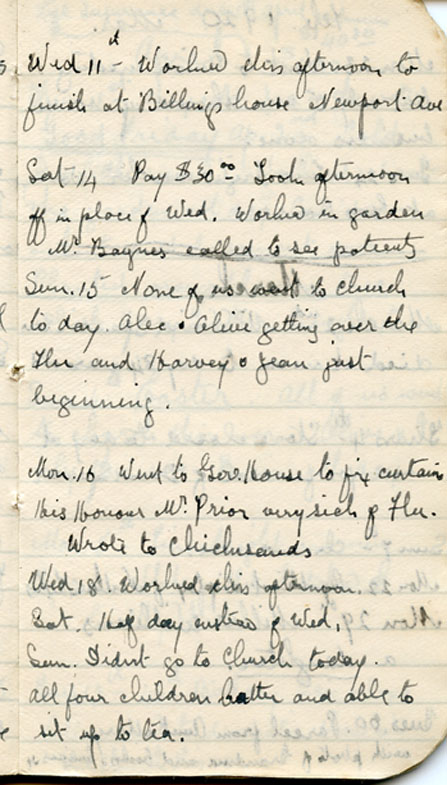 Wed 11th - Worked this afternoon to
finish at Billings house Newport Ave
Sat 14 Pay $30.00 Took afternoon
off in place of Wed. Worked in garden
Mr. Baynes called to see patients
Sun. 15 None of us went to church
to day. Alec & Olive getting over the
Flu and Harvey & Jean just
beginning.
Mon. 16 Went to Gov. House to fix curtain
His Honour Mr. Prior very sick of Flu.
Wrote to Chicksands
Wed 18. Worked this afternoon.
Sat. Half day instead of Wed,
Sun. Didnt go to Church today.
all four children better and able to
sit up to tea.